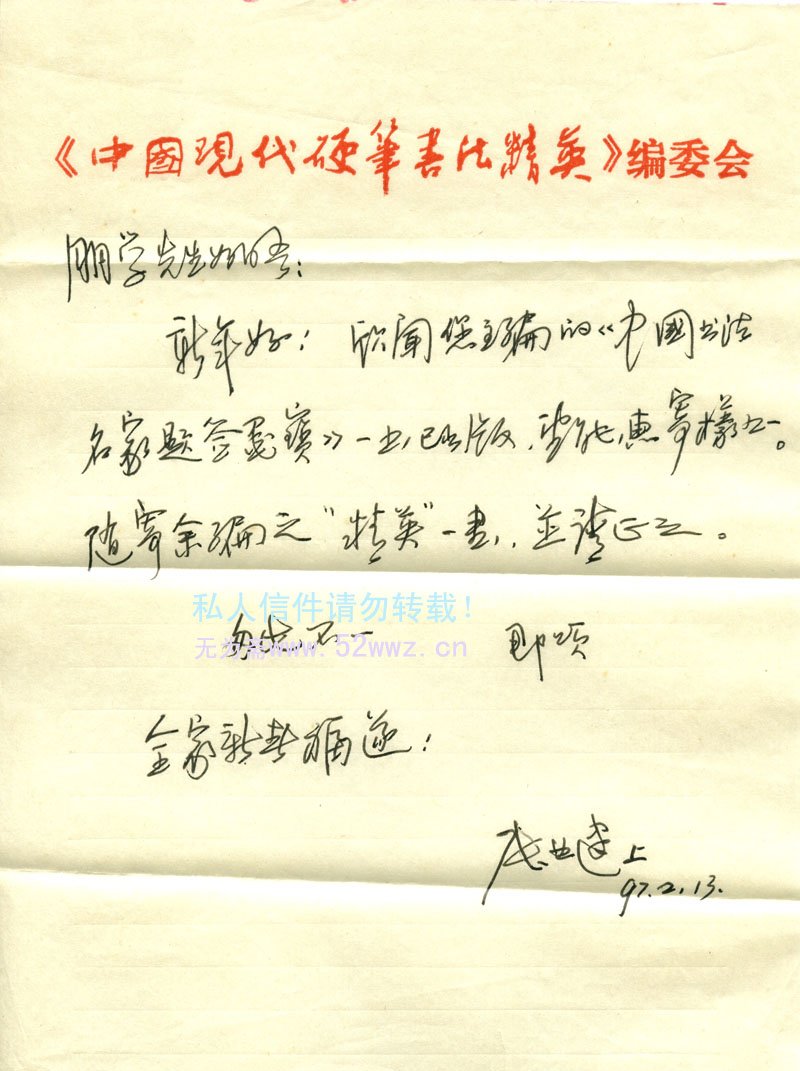 《中國現代硬筆書法精英》编委会
朋学先生如晤:
新年好! 欣闻您主编的《中國书法
名家题签墨寶》一书已出版,望能惠寄樣书。
随寄余编之"精英"一書,並请正之。
私人信件请勿转载!
匆匆不一 即颂
无为斋www.52wwz.cn
全家新春福遂!
上
97.2.13.